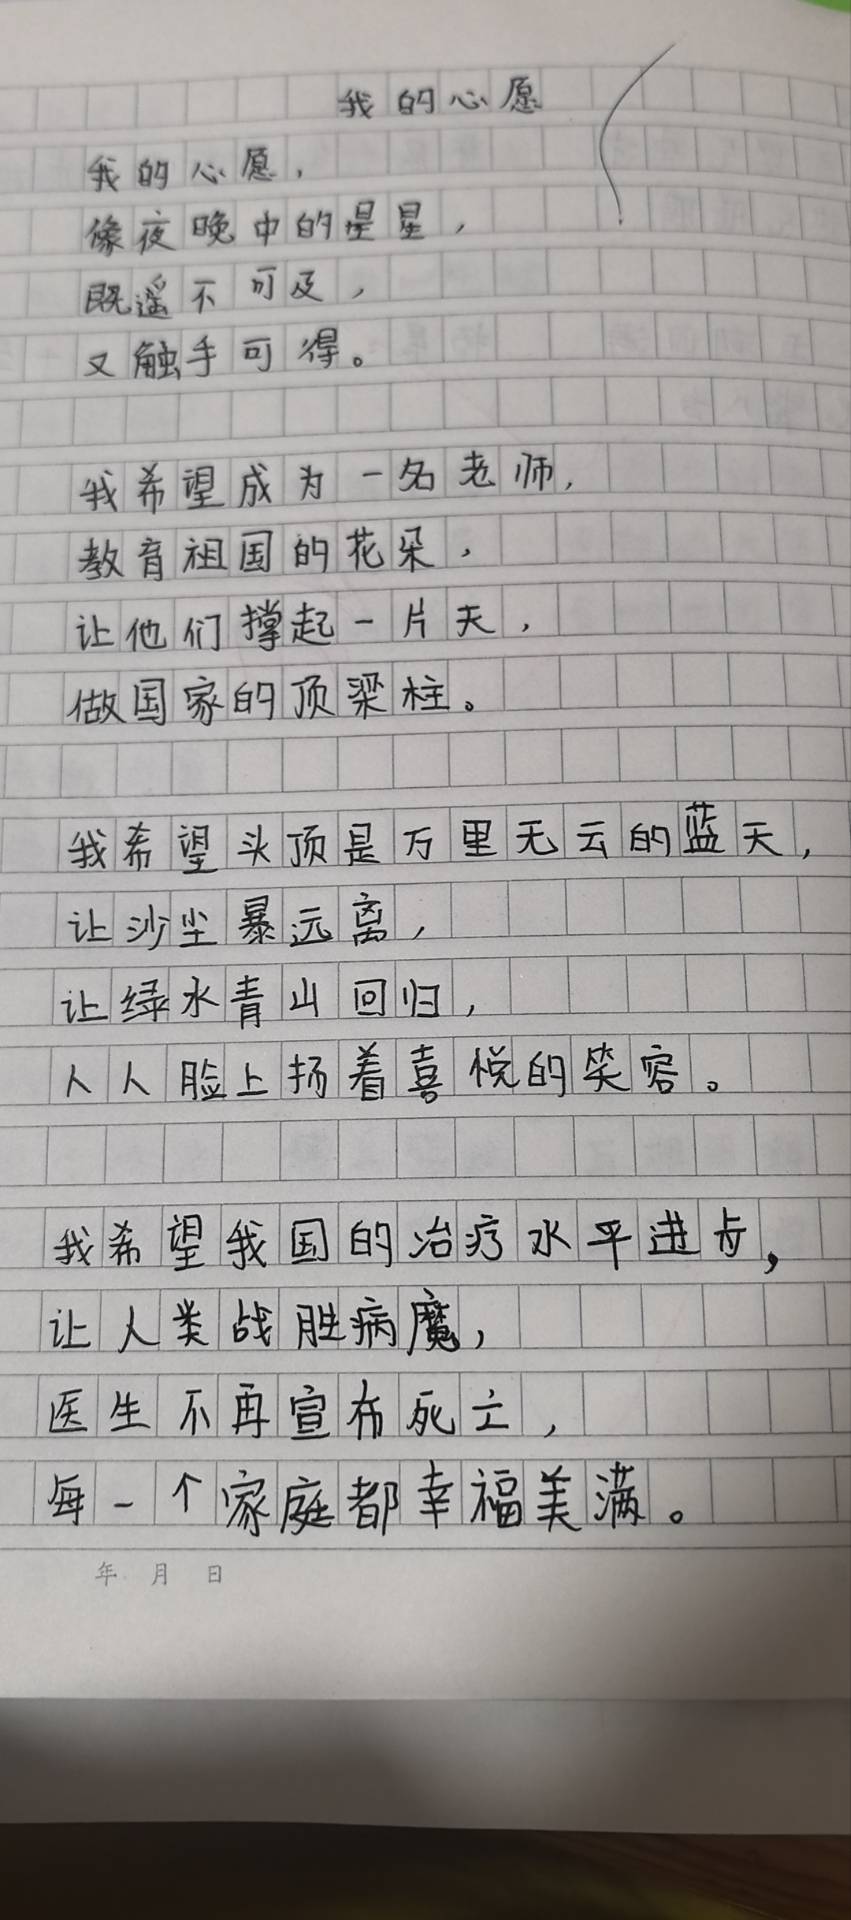 我的心愿
我的心愿，
像夜晚中的星星，
既遥不可及，
又触手可得。
我希望成为一名老师，
教育祖国的花朵，
让他们撑起一片天，
做国家的顶梁柱。
我希望头顶是万里无云的蓝天，
让沙尘暴远离，
让绿水青山回归，
人人脸上扬着喜悦的笑容。
我希望我国的治疗水平进步，
让人类战胜病魔，
医生不再宣布死亡，
每一个家庭都幸福美满。
年 月 日